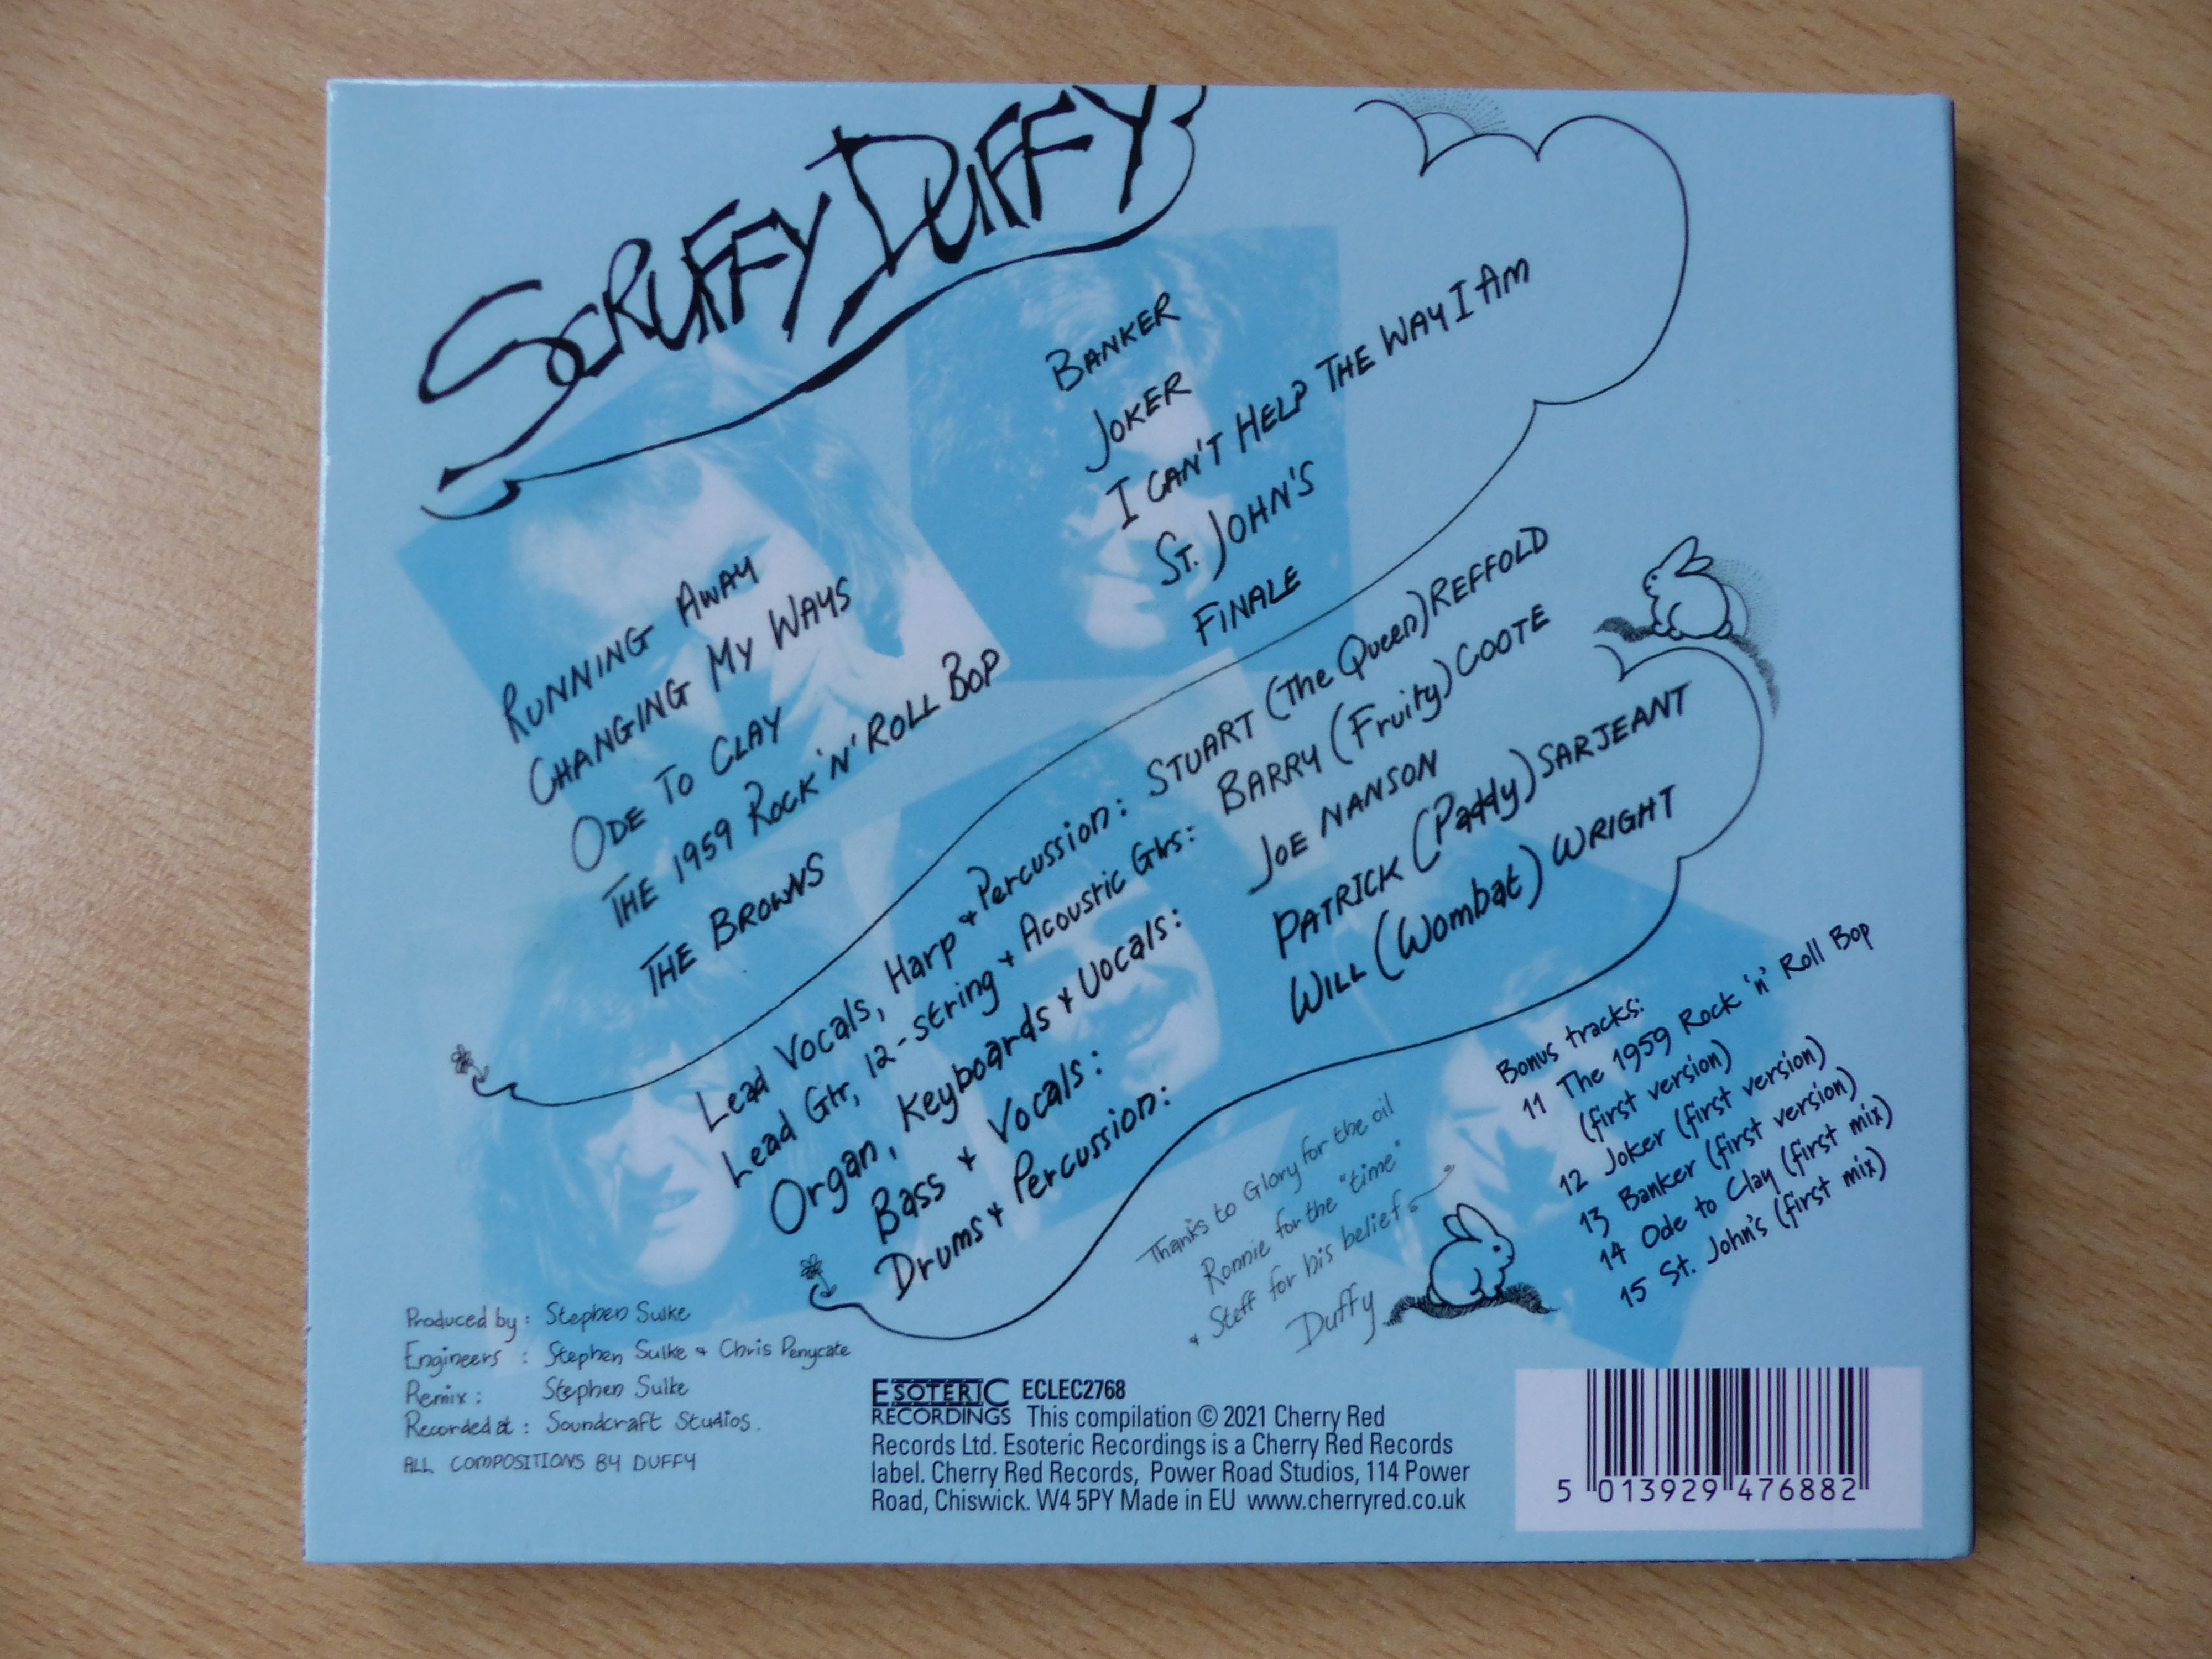 SCRUFFY DUFFY
RUNNING AWAY
CHANGING MY WAYS
ODE TO CLAY
THE 1959 ROCK 'N' ROLL BOP
THE BROWNS
BANKER
JOKER
I CAN'T HELP THE WAY I AM
ST. JOHN'S
FINALE
Lead Vocals, Harp + Percussion: STUART (The Queen) REFFOLD
Lead Gtr, 12-string + Acoustic Gtrs: BARRY (Fruity) COOTE
Organ, Keyboards + Vocals: JOE NANSON
Bass + Vocals: PATRICK (Paddy) SARJEANT
Drums + Percussion: WILL (Wombat) WRIGHT
Thanks to Glory for the oil
Ronnie for the "time"
+ Steff for his belief
Duffy
Bonus tracks:
11 The 1959 Rock 'n' Roll Bop
(first version)
12 Joker (first version)
13 Banker (first version)
14 Ode to Clay (first mix)
15 St. John's (first mix)
Produced by: Stephen Sulke
Engineers : Stephen Sulke + Chris Penycate
Remix: Stephen Sulke
Recorded at: Soundcraft Studios.
ALL COMPOSITIONS BY DUFFY
ESOTERIC ECLEC2768
RECORDINGS This compilation © 2021 Cherry Red
Records Ltd. Esoteric Recordings is a Cherry Red Records
label. Cherry Red Records, Power Road Studios, 114 Power
Road, Chiswick. W4 5PY Made in EU www.cherryred.co.uk
5 013929 476882